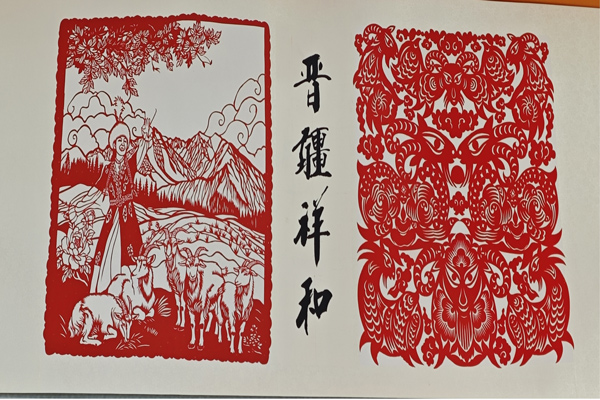 晋疆祥和